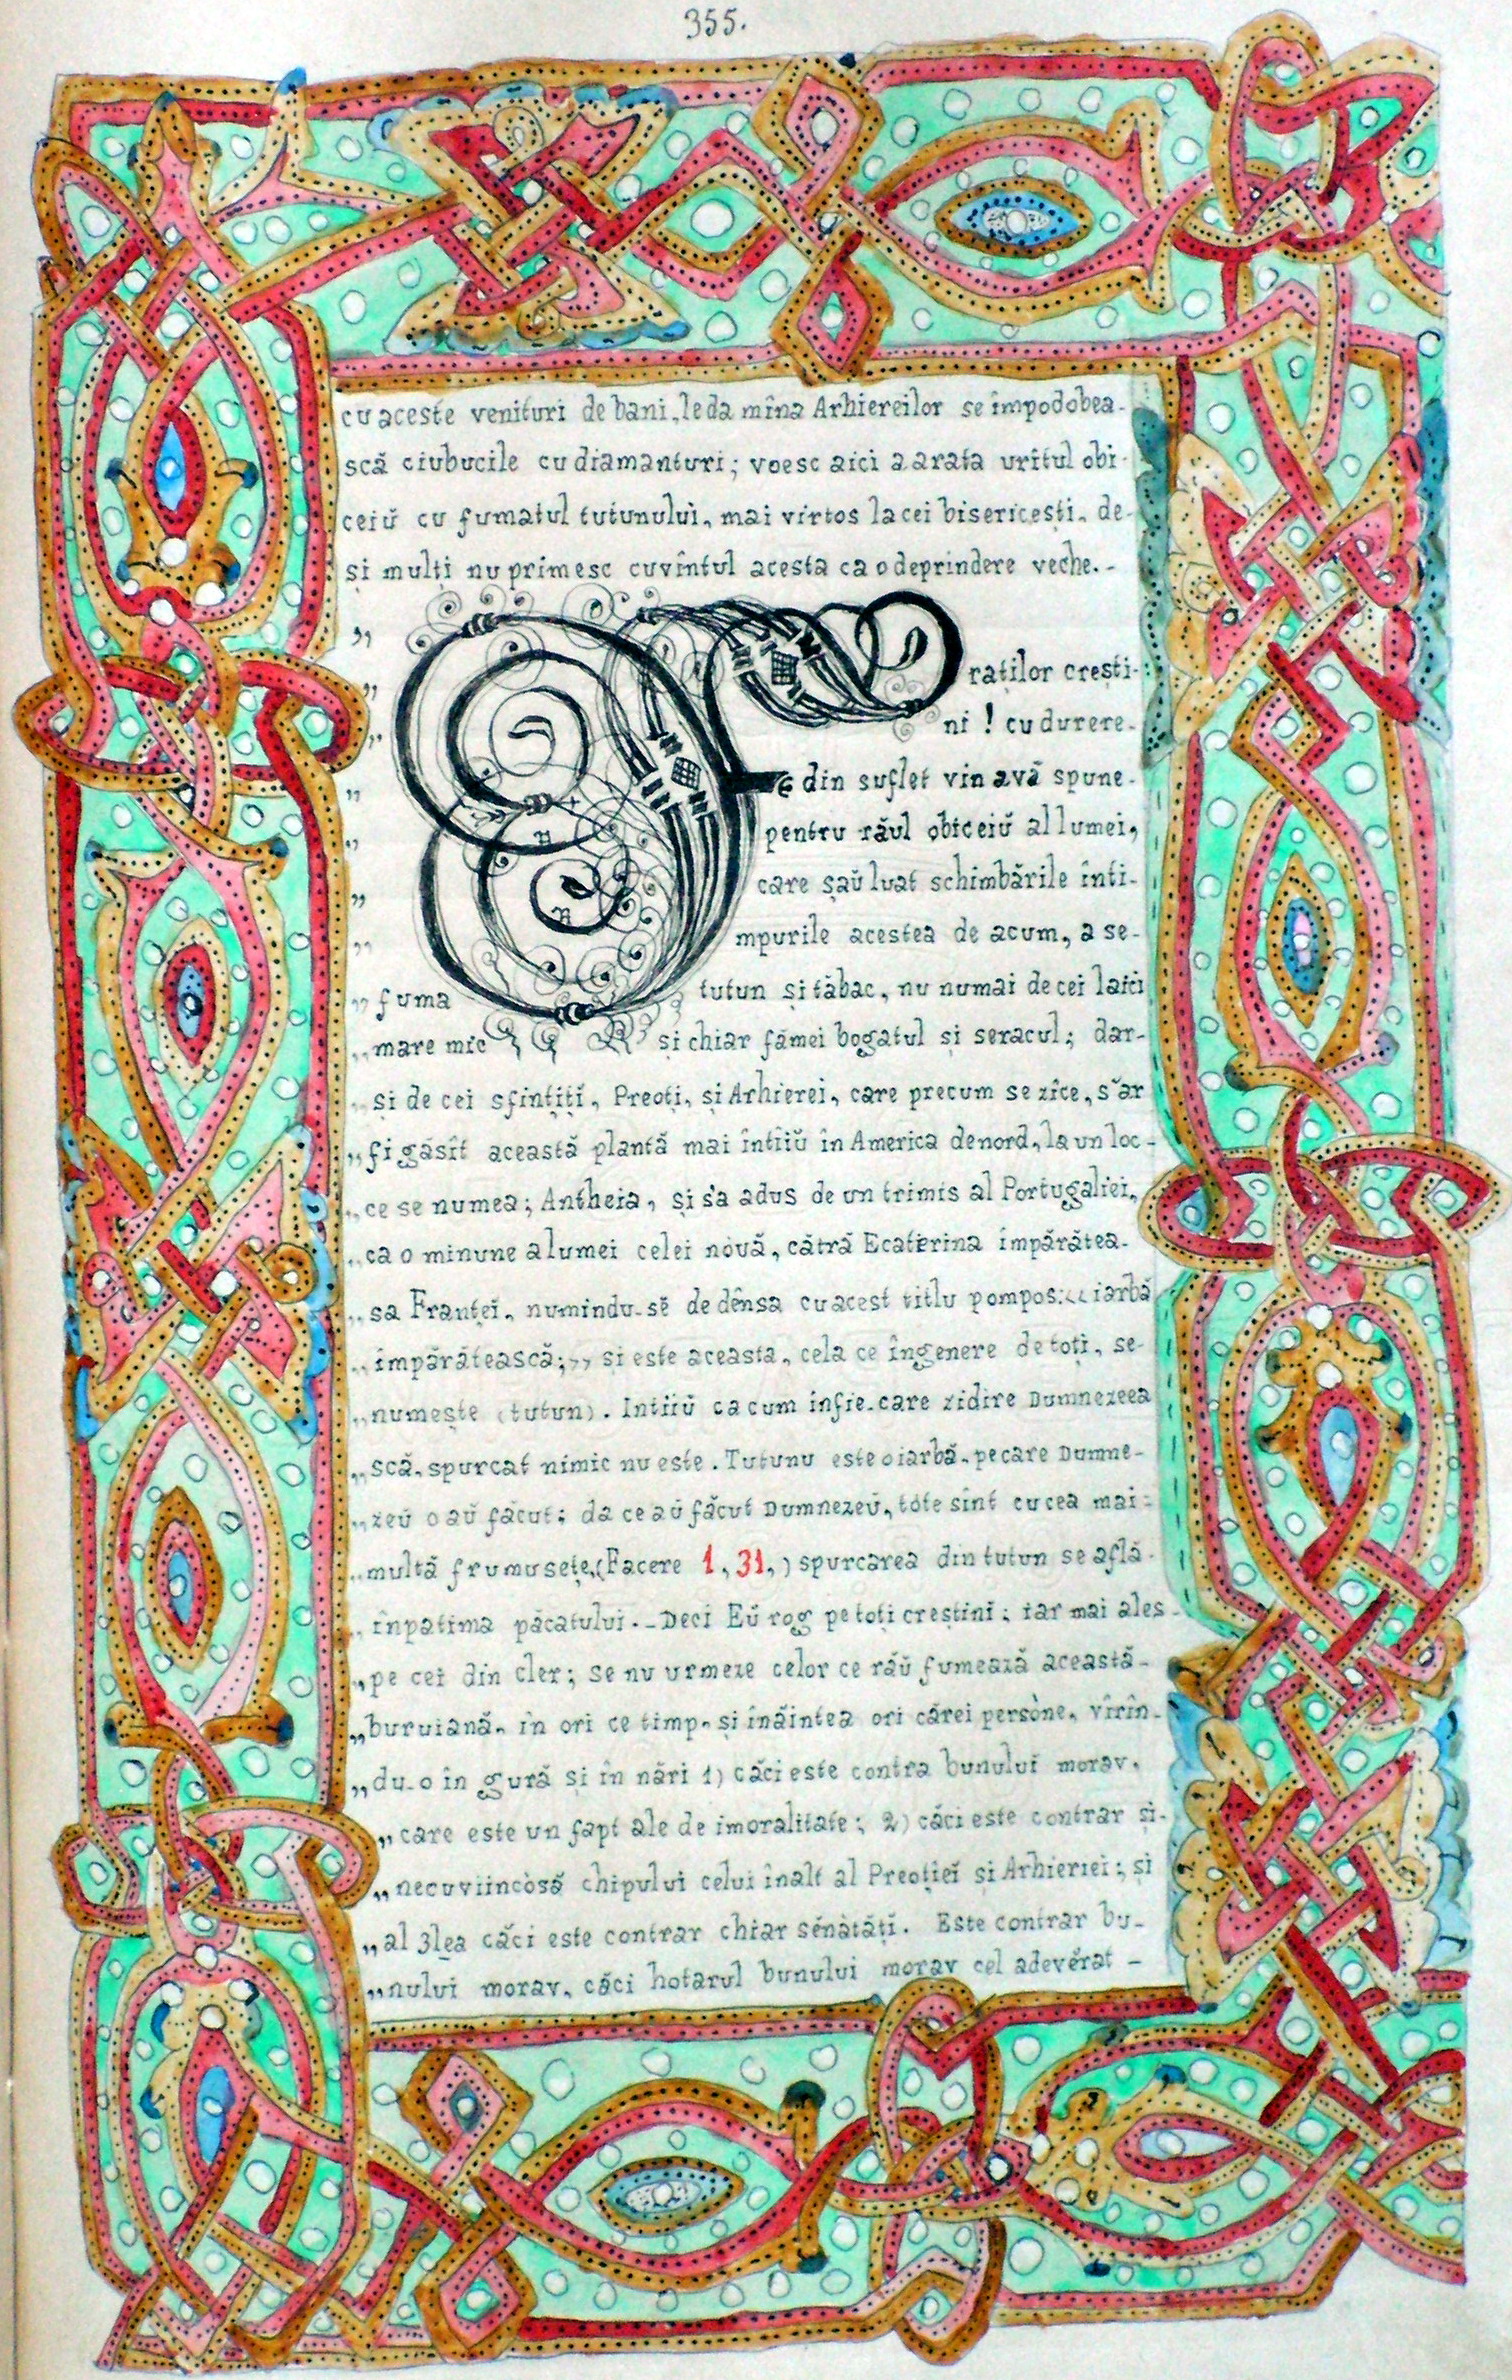 355.
cu aceste venituri de bani, le da mîna Arhiereilor se împodobea-
scă ciubucile cu diamanturi; voesc aici a arata urîtul obi-
ceiŭ cu fumatul tutunului, mai vîrtos la cei bisericești, de-
și mulți nu primesc cuvîntul acesta ca o deprindere veche.-
„ Fraților crești-
„ ni ! cu durere-
„ din suflet vin avă spune-
„ pentru răul obiceiŭ al lumei,
„ care șaŭ luat schimbările înti-
„ mpurile acestea de acum, a se-
„ fuma tutun și tăbac, nu numai de cei laici
„ mare mic și chiar fămei bogatul și seracul; dar-
„ și de cei sfințiți, Preoți, și Arhierei, care precum se zîce, s'ar
„ fi găsit această plantă mai întîiŭ în America de nord, la un loc-
„ ce se numea; Antheia, și s'a adus de un trimis al Portugaliei,
„ ca o minune a lumei celei nouă, cătră Ecaterina împărătea-
„ sa Franței, numindu-sĕ de dênsa cu acest titlu pompos:„ iarbă
„ împărătească;„ și este aceasta, cela ce în genere de toți, se-
„ numește (tutun). Intîiŭ ca cum în fie-care zidire Dumnezeea
„ scă, spurcat nimic nu este. Tutunu este o iarbă, pe care Dumne-
„ zeŭ o aŭ făcut; da ce aŭ făcut Dumnezeŭ, tóte sînt cu cea mai-
„ multă frumusețe,(Facere 1, 31,) spurcarea din tutun se află-
„ în patima păcatului.-Deci Eŭ rog pe toți creștini; iar mai ales-
„ pe cei din cler; se nu urmeze celor ce răŭ fumează această-
„ buruiană, în ori ce timp, și înăintea ori cărei persòne, vîrîn-
„ du-o în gură și în nări 1) căci este contra bunului morav,
„ care este un fapt ale de imoralitate; 2) căci este contrar și-
„ necuviincòsă chipului celui înalt al Preoției și Arhieriei; și
„ al 3lea căci este contrar chiar sĕnătăți. Este contrar bu-
„ nului morav, căci hotarul bunului morav cel adevĕrat -